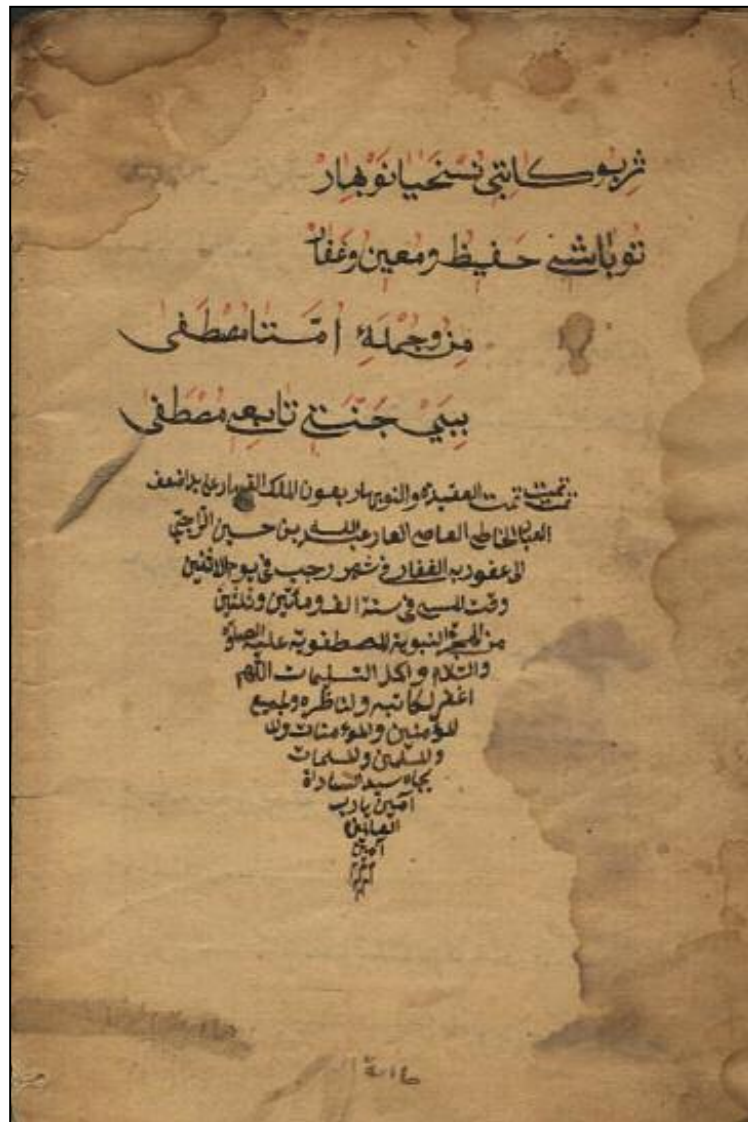 ژبو كاتبى نسخيا نوبهار
تو باشى حفيظ و معين و غفار
من و جملهٔ امتا مصطفى
ببى جنتى تابعى مصطفى
تمت تمت تمت العقيدة والنوبهار بعون الملك القهار على يد اضعف
العباد الخاطى العاصى العار عبد الله بن حسين
الى عفو ربه الغفار فى شهر رجب فى يوم الاثنين
وقت المسى فى سنة الف ومأتين وثلثين
من الهجرة النبوية المصطفوية عليه الصلوة
والسلام واكمل التسليمات اللهم
اغفر لكاتبه ولناظره ولجميع
المؤمنين والمؤمنات
والمسلمين والمسلمات
بجاه سيد السادات
آمين يا رب
العالمين
آمين